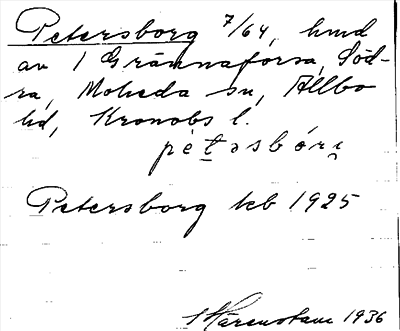 Petersborg 7/64, hmd
av 1 Grännaforsa, Söd-
ra, Moheda sn, Allbo
hd, Kronobs l.
pètəsbórj
Petersborg kb 1925
1936